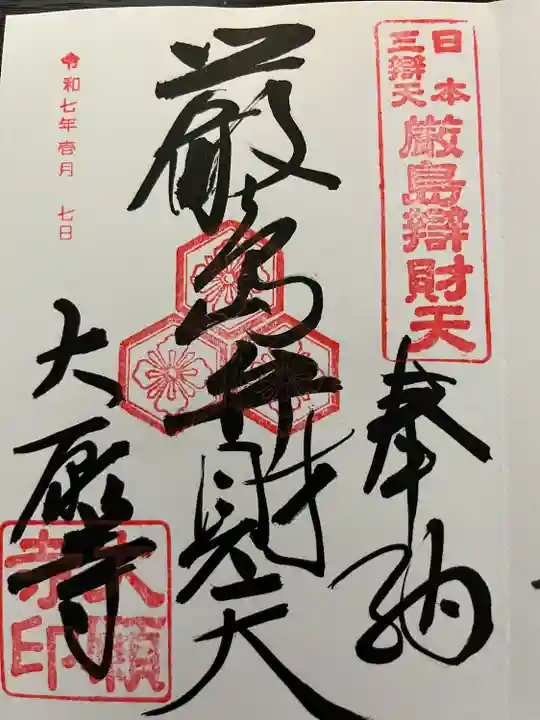 日本
三辯天
厳島辯財天
奉納
厳島弁財天
大願寺
大願
寺印
令和七年壱月 七日